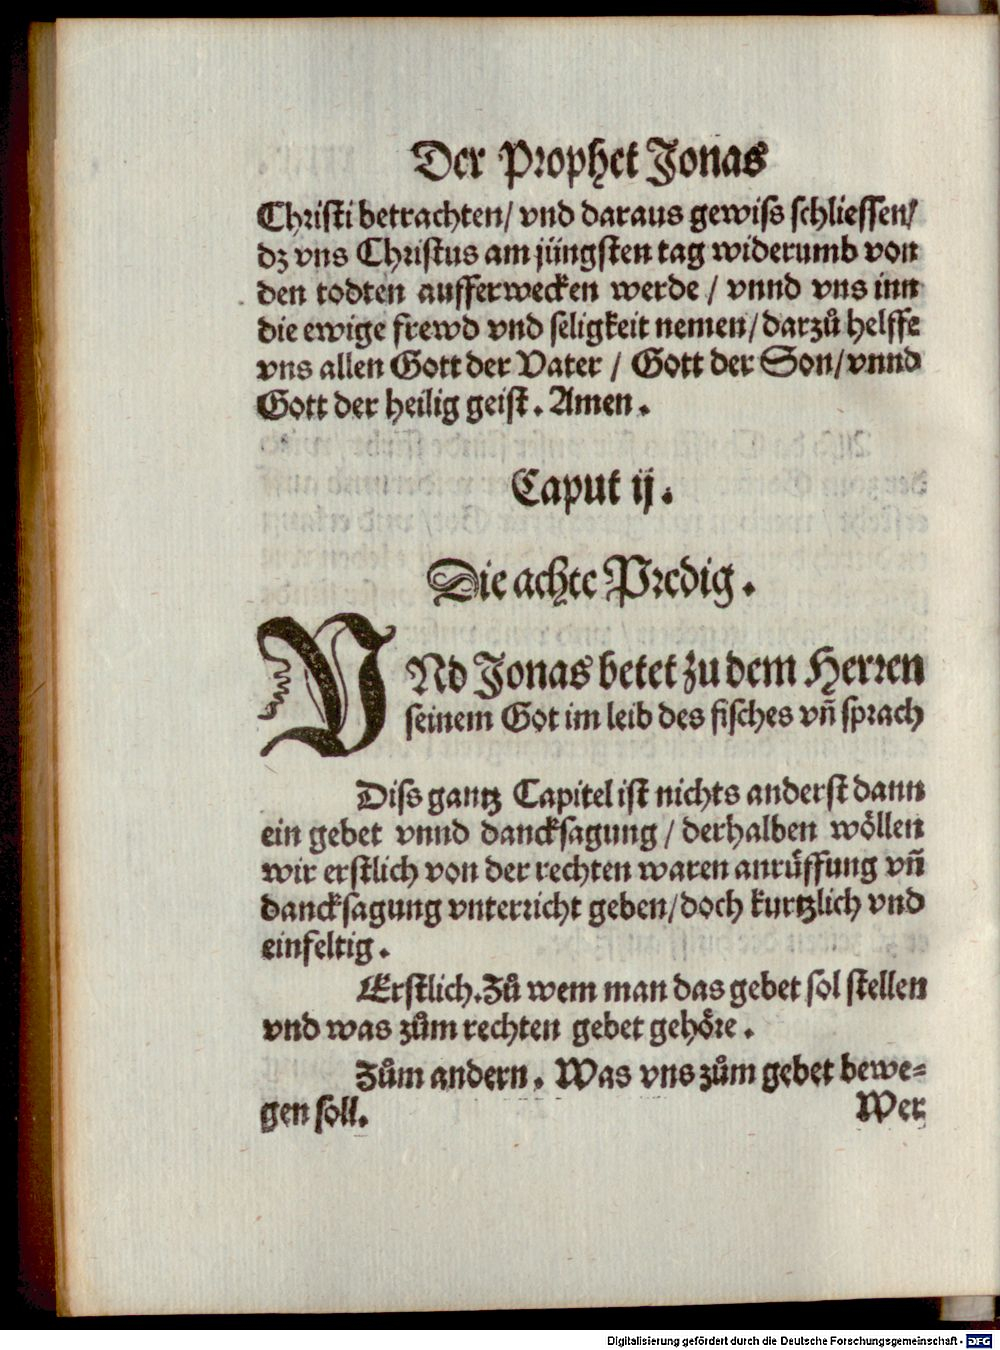 Der Prophet Jonas
Christi betrachten/ vnd daraus gewiss schliessen/
dz vns Christus am jüngsten tag widerumb von
den todten aufferwecken werde / vnnd vns inn
die ewige frewd vnd seligkeit nemen/ darzů helffe
vns allen Gott der Vater / Gott der Son/ vnnd
Gott der heilig geist. Amen.
Caput ij.
Die achte Predig.
VNd Jonas betet zu dem Herren
seinem Got im leib des fisches vñ sprach
Diss gantz Capitel ist nichts anderst dann
ein gebet vnnd dancksagung / derhalben wöllen
wir erstlich von der rechten waren anrüffung vñ
dancksagung vnterricht geben/ doch kurtzlich vnd
einfeltig.
Erstlich. Zů wem man das gebet sol stellen
vnd was zům rechten gebet gehöre.
Zům andern. Was vns zům gebet bewe=
gen soll.
Wer
Digitalisierung gefördert durch die Deutsche Forschungsgemeinschaft - DFG